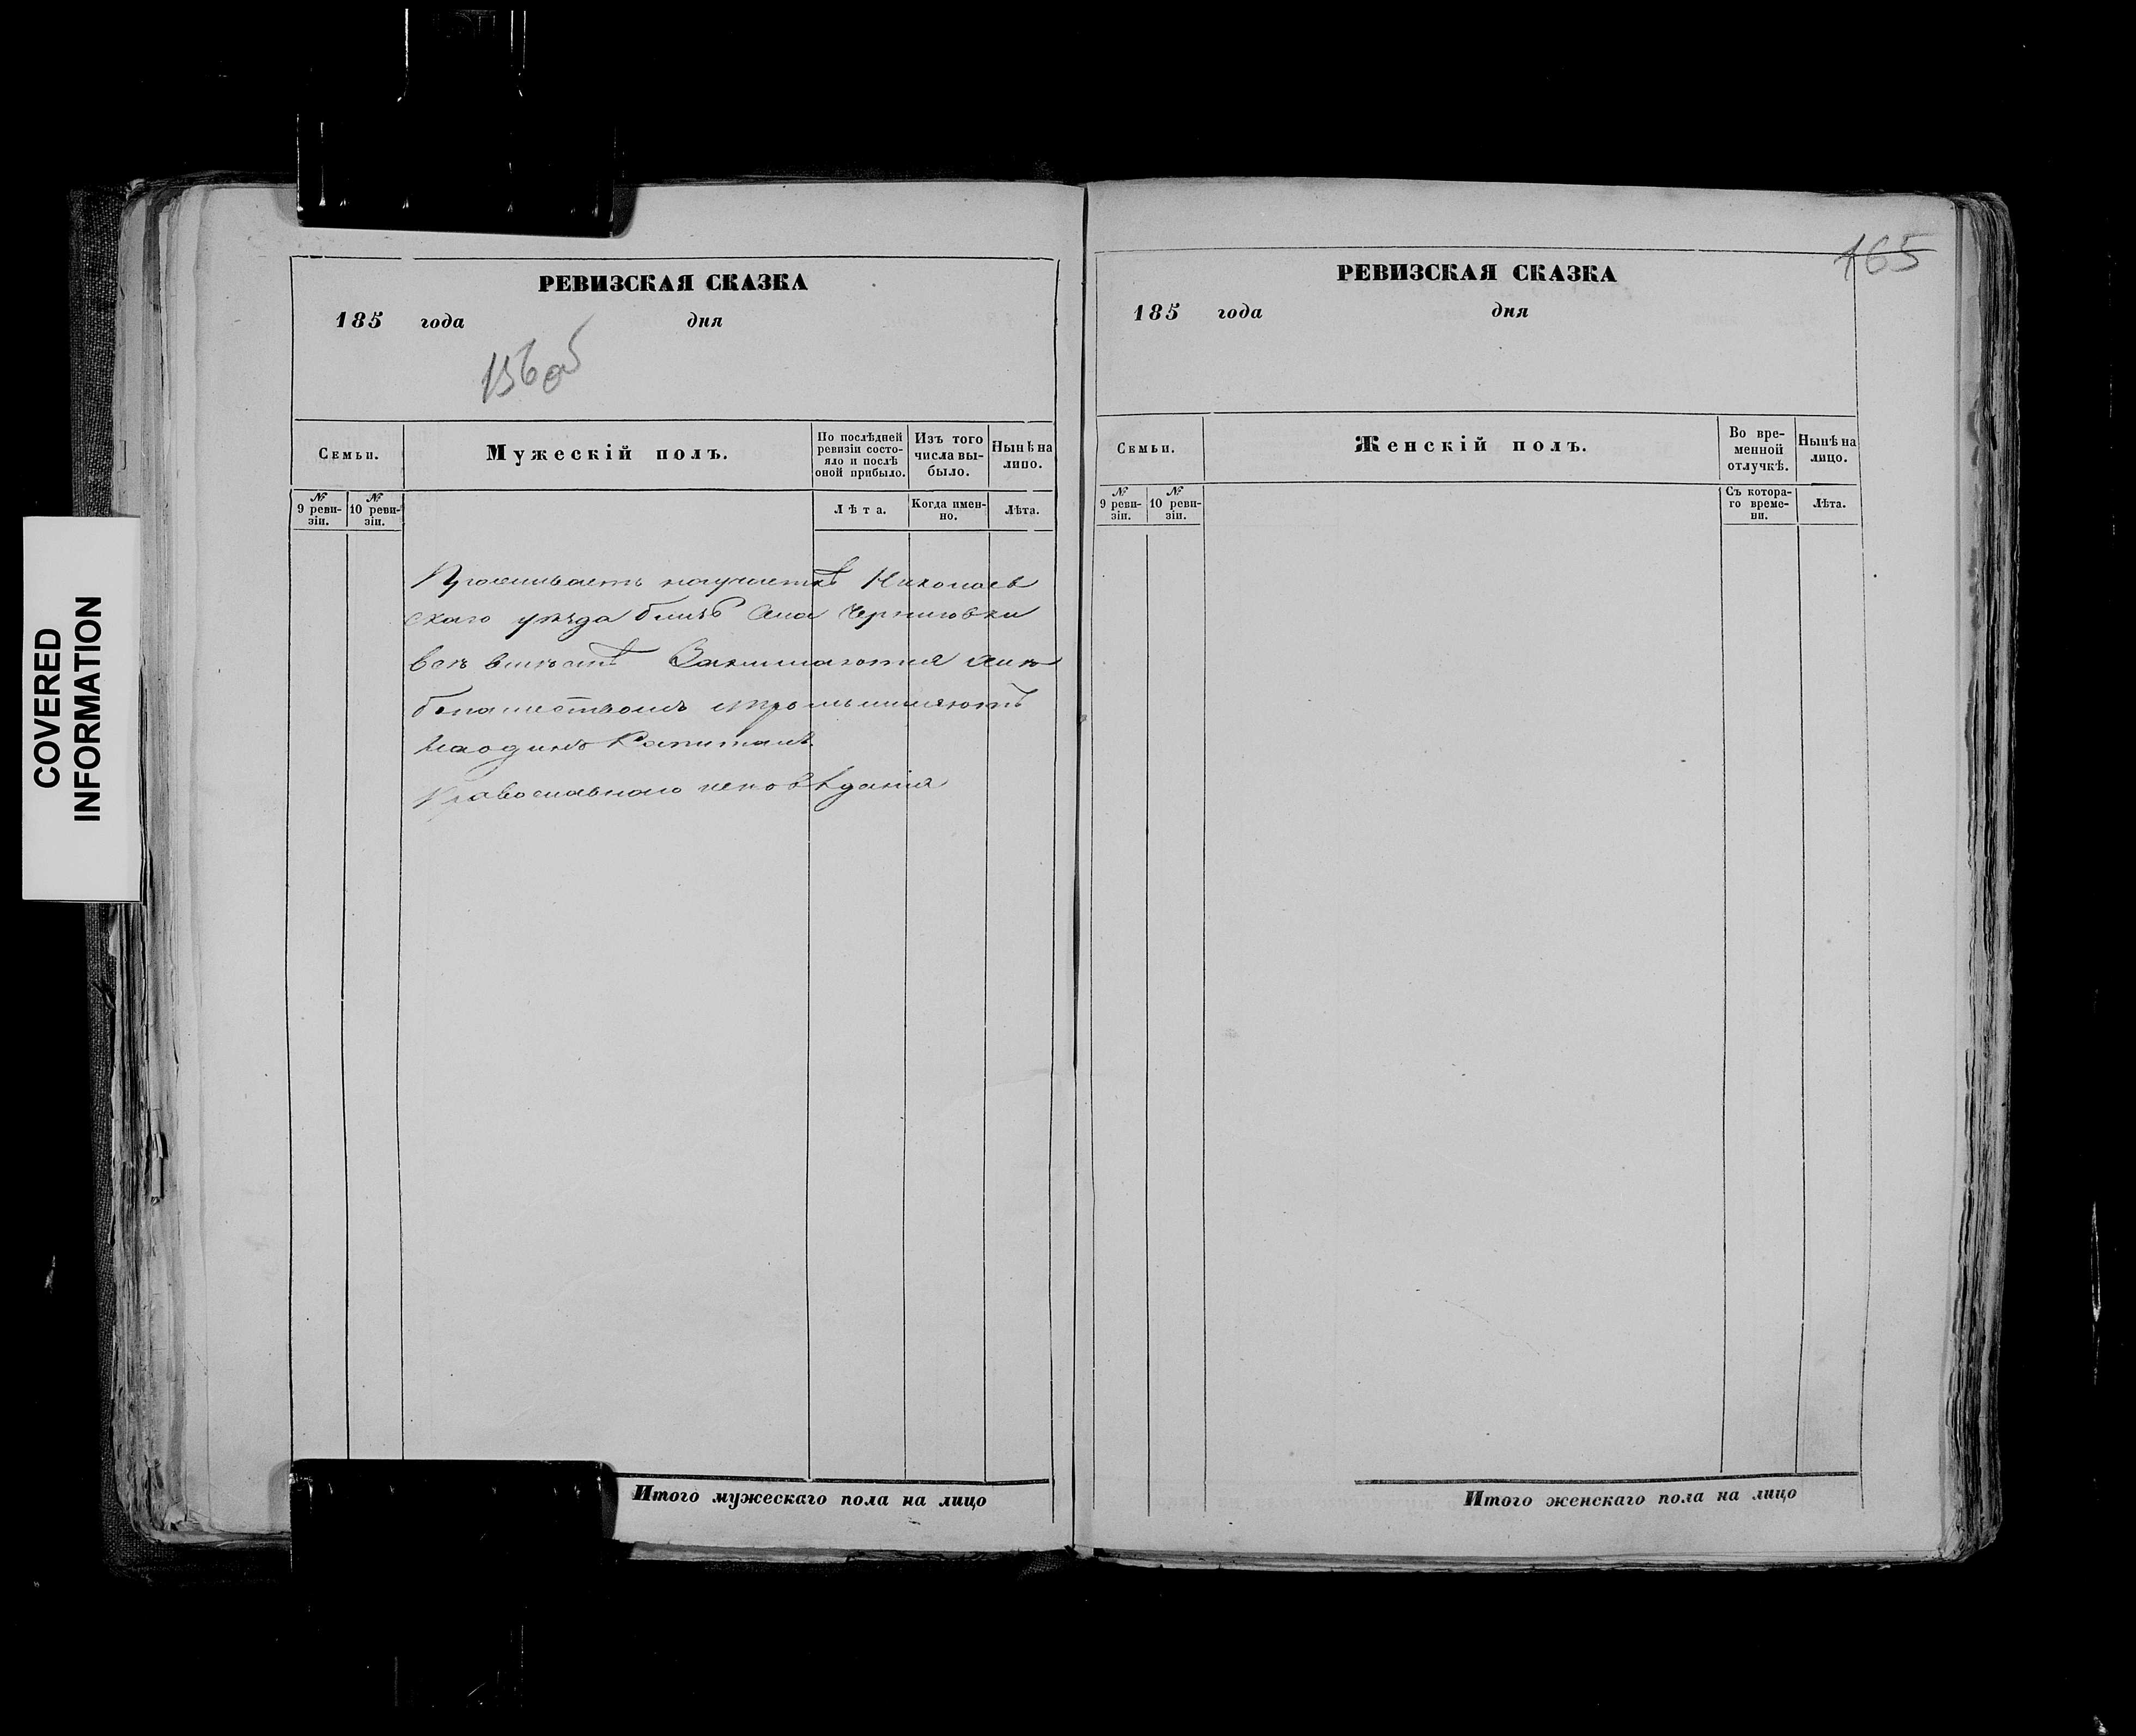 COVERED
INFORMATION
РЕВИЗСКАЯ СКАЗКА
185 года дня
156 об
Семьи.
Мужескій полъ.
По послѣдней
ревизіи состо-
яло и послѣ
оной прибыло.
Изъ того
числа вы-
было.
Нынѣ на
лицо.
№
9 реви-
зіи.
№
10 реви-
зіи.
Лѣта.
Когда имен-
но.
Лѣта.
Проживаетъ научасткѣ Николаев
скаго уезда близъ Черниговки
Занимаются
хлебопашествомъ
Наодинъ Капиталъ
Православнаго исповѣданія
Итого мужескаго пола на лицо
165
РЕВИЗСКАЯ СКАЗКА
185 года дня
Семьи.
Женскій полъ.
Во вре-
менной
отлучкѣ.
Нынѣ на
лицо.
№
9 реви-
зіи.
№
10 реви-
зіи.
Съ котора-
го време-
ни.
Лѣта.
Итого женскаго пола на лицо